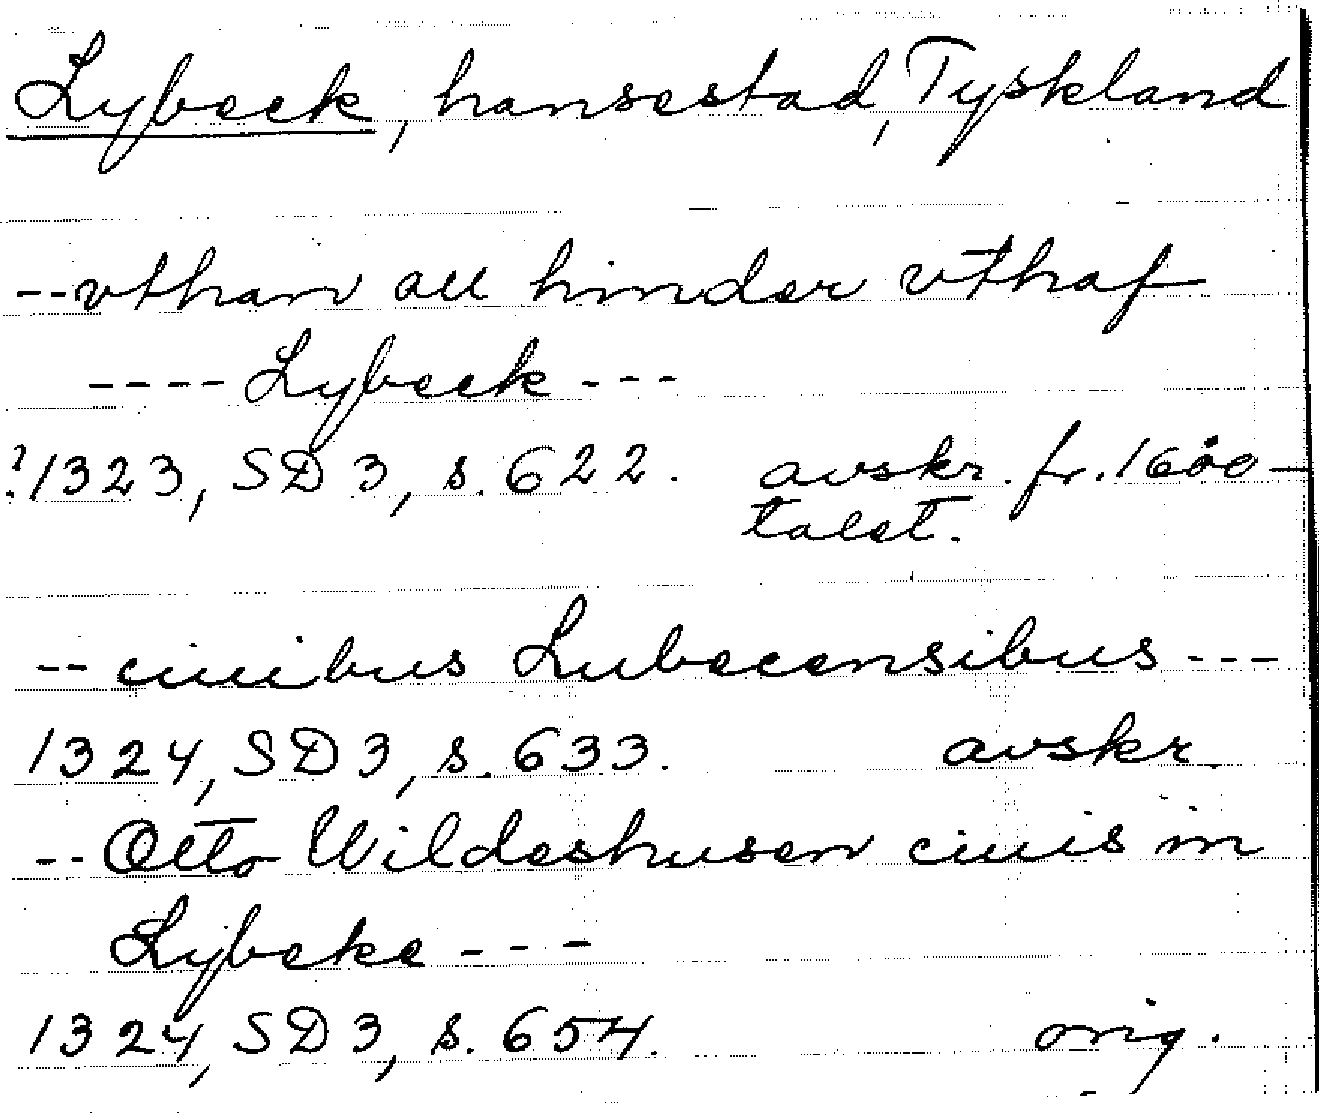 Lybeck, hansestad, Tyskland
--vthan all hinder vthaf
----Lybeck---
?1323, SD 3, s. 622. avskr. fr. 1600-
talet.
--ciuibus Lubecensibus---
1324, SD 3, s. 633. avskr.
--Otto Wildeshusen ciuis in
Lybeke---
1324, SD 3, s. 654. orig.